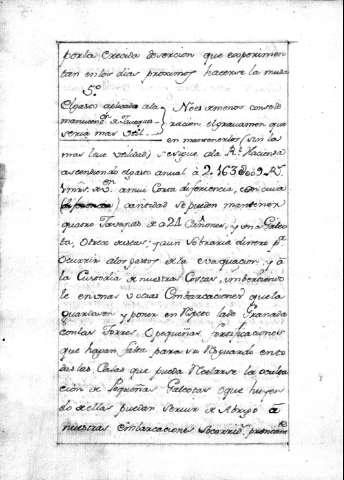 por la crecida desercion que experimen
tan en los dias proximos hacerse la muda
5.º
El gasto aplicado a la
manutenc.ⁿ de Tavaqua
seria mas util
No es de menos conside
racion el gravamen que
en mantenerlos (sin la
mas leve utilidad) se sigue a la R.ˡ Hacienda
ascendiendo el gasto anual à
a mui corta diferencia, con cuia
cantidad se pueden mantener
quatro de a 24 Cañones, y una Galeo
ta, Otros duicas: y aun sobraria dinero p.ᵃ
ocurrir a los gastos de la evaquacion, y à
la Custodia de nuestras Costas, imbirtiendo
le en unas y otras Embarcaciones que la
guarden y poner en la Granada
con las Torres, o pequeñas fortificaciones
que hagan falta para su Resguardo en to
das las Calas que pueda Recelarse la oculta
cion de Pequeñas Galeotas o que huyen
do de ellas puedan servir de Abrigo à
nuestras embarcaciones